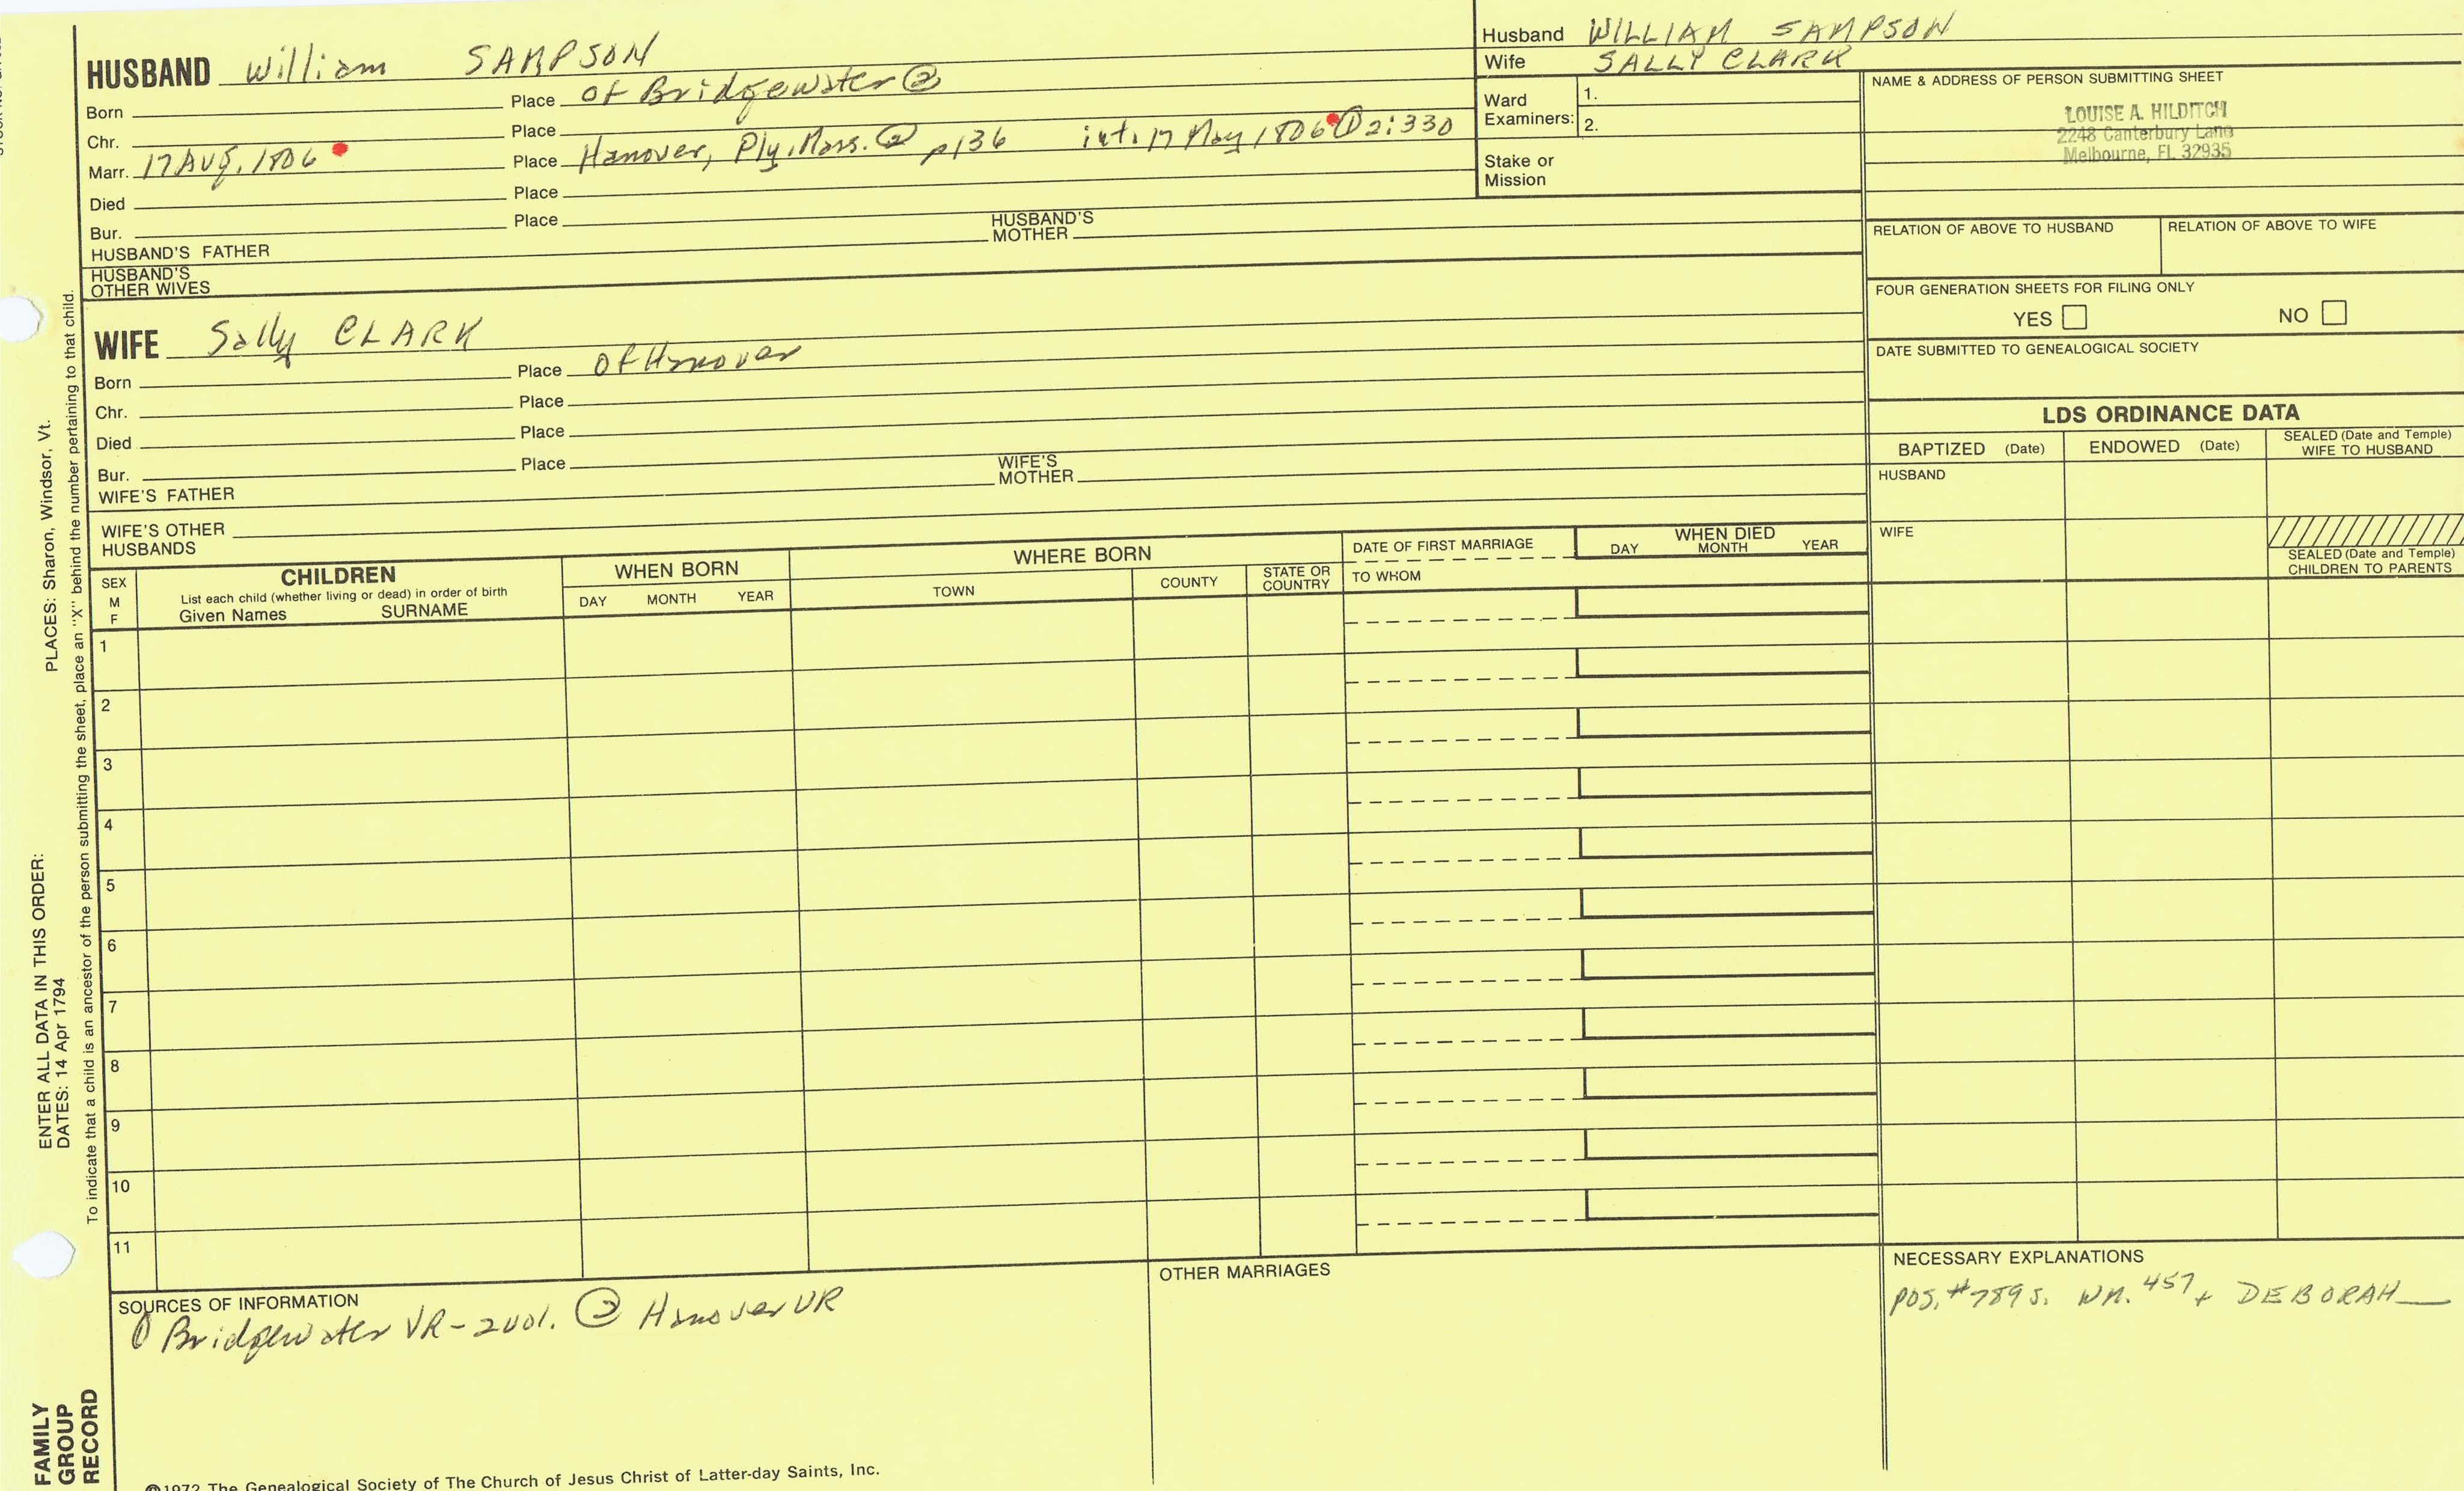 HUSBAND William SAMPSON
Born Place of Bridgewater ②
Chr. Place
Marr. 17 AUG. 1806 Place Hanover, Ply. Mass. ② p136 int. 17 May 1806 ① 2:330
Died Place
Bur. Place
HUSBAND'S FATHER HUSBAND'S MOTHER
HUSBAND'S OTHER WIVES
Husband WILLIAM SAMPSON
Wife SALLY CLARK
Ward Examiners: 1.
2.
Stake or Mission
NAME & ADDRESS OF PERSON SUBMITTING SHEET
LOUISE A. HILDITCH
2248 Canterbury Lane
Melbourne, FL 32935
RELATION OF ABOVE TO HUSBAND RELATION OF ABOVE TO WIFE
FOUR GENERATION SHEETS FOR FILING ONLY
YES NO
DATE SUBMITTED TO GENEALOGICAL SOCIETY
WIFE Sally CLARK
Born Place Of Hanover
Chr. Place
Died Place
Bur. Place
WIFE'S FATHER WIFE'S MOTHER
WIFE'S OTHER HUSBANDS
LDS ORDINANCE DATA
BAPTIZED (Date) ENDOWED (Date) SEALED (Date and Temple) WIFE TO HUSBAND
HUSBAND
WIFE
SEALED (Date and Temple) CHILDREN TO PARENTS
SEX M F
CHILDREN
List each child (whether living or dead) in order of birth
Given Names SURNAME
WHEN BORN
DAY MONTH YEAR
WHERE BORN
TOWN COUNTY STATE OR COUNTRY
DATE OF FIRST MARRIAGE
TO WHOM
WHEN DIED
DAY MONTH YEAR
1
2
3
4
5
6
7
8
9
10
11
SOURCES OF INFORMATION
① Bridgewater VR - 2 vol. ② Hanover VR
OTHER MARRIAGES
NECESSARY EXPLANATIONS
POS. #789 S. WM. 457 + DEBORAH
©1972 The Genealogical Society of The Church of Jesus Christ of Latter-day Saints, Inc.
FAMILY GROUP RECORD
ENTER ALL DATA IN THIS ORDER:
DATES: 14 Apr 1794
PLACES: Sharon, Windsor, Vt.
To indicate that a child is an ancestor of the person submitting the sheet, place an "X" behind the number pertaining to that child.